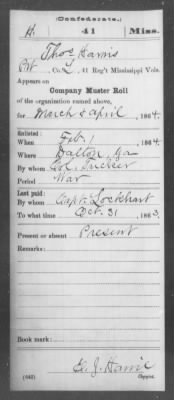 (Confederate.)
H 41 Miss.
Thos Harris
Pvt Co. L, 41 Reg't Mississippi Vols.
Appears on
Company Muster Roll
of the organization named above,
for March & April, 1864.
Enlisted:
When Feb. 1, 1864.
Where Dalton, Ga
By whom Col. Tucker
Period War
Last paid:
By whom Capt. Lockhart
To what time Oct. 31, 1863.
Present or absent Present
Remarks:
Book mark:
(642)
Copyist.